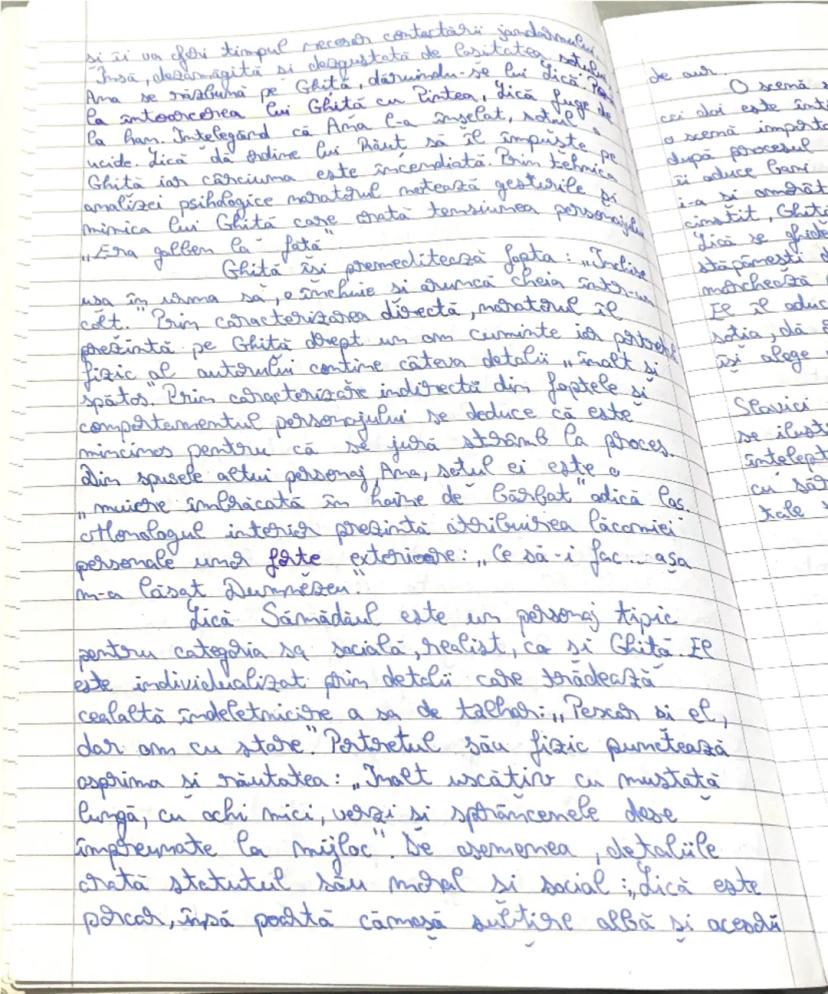 si îi va oferi timpul necesar contactării jandarmului.
Însă, dezamăgită si dezgustată de lasitatea sotului,
Ana se răzbună pe Ghită, dăruindu-se lui Lică.
la întoarcerea lui Ghită cu Pintea, Lică fuge de
la han. Intelegând că Ana l-a înselat, sotul o
ucide. Lică dă ordine lui Răut să îl împuște pe
Ghită iar cârciuma este incendiată. Prin tehnica
analizei psihologice naratorul notează gesturile și
mimica lui Ghită care arată tensiunea personajului
„Era galben la față"
Ghită își premeditează fapta: „Inchise
usa în urma sa, o închuie si aruncă cheia într-un
colt." Prin caracterizarea directă, naratorul îl
prezintă pe Ghită drept un om cuminte iar portretul
fizic al autorului contine câteva detalii „înalt si
spătos". Prin caracterizare indirectă din faptele si
comportamentul personajului se deduce că este
mincinos pentru că se jură strâmb la proces.
Din spusele altui personaj, Ana, sotul ei este o
„muiere îmbrăcată în haine de bărbat" adică las.
Monologul interior prezintă atribuirea lăcomiei
personale unor forte exterioare: „Ce să-i fac... așa
m-a lăsat Dumnezeu."
Lică Sămădăul este un personaj tipic
pentru categoria sa socială, realist, ca si Ghită. El
este individualizat prin detalii care trădează
cealaltă îndeletnicire a sa de talhar: „Porcar si el,
dar om cu stare." Portretul său fizic punctează
asprima si răutatea: „Inalt uscătiv cu mustață
lungă, cu ochi mici, verzi si sprâncenele dese
împreunate la mijloc". De asemenea, detaliile
arată statutul său moral și social: „Lică este
porcar, însă poartă cămașă subțire albă și
de aur.
O scenă
cei doi este
o scenă
după procesul
îi aduce bani
i-a si
cinstit,
Lică se
stăpânești
marchează
El îl aduc
sotia, dă
își alege
Slavici
se
cu
tale